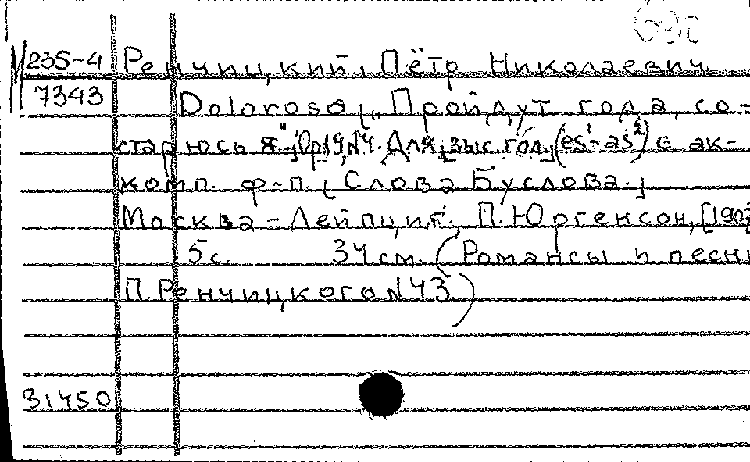 М 235-4 Ренчицкий, Пётр Николаевич
7343 Doloroso. „Пройдут года, со-
старюсь я". Для выс. гол. (es¹-as²) с ак-
комп. ф-п. Слова Буслова.
Москва-Лейпциг, П. Юргенсон,
5 с. 34 см. (Романсы и песни
П. Ренчицкого № 43)
31450